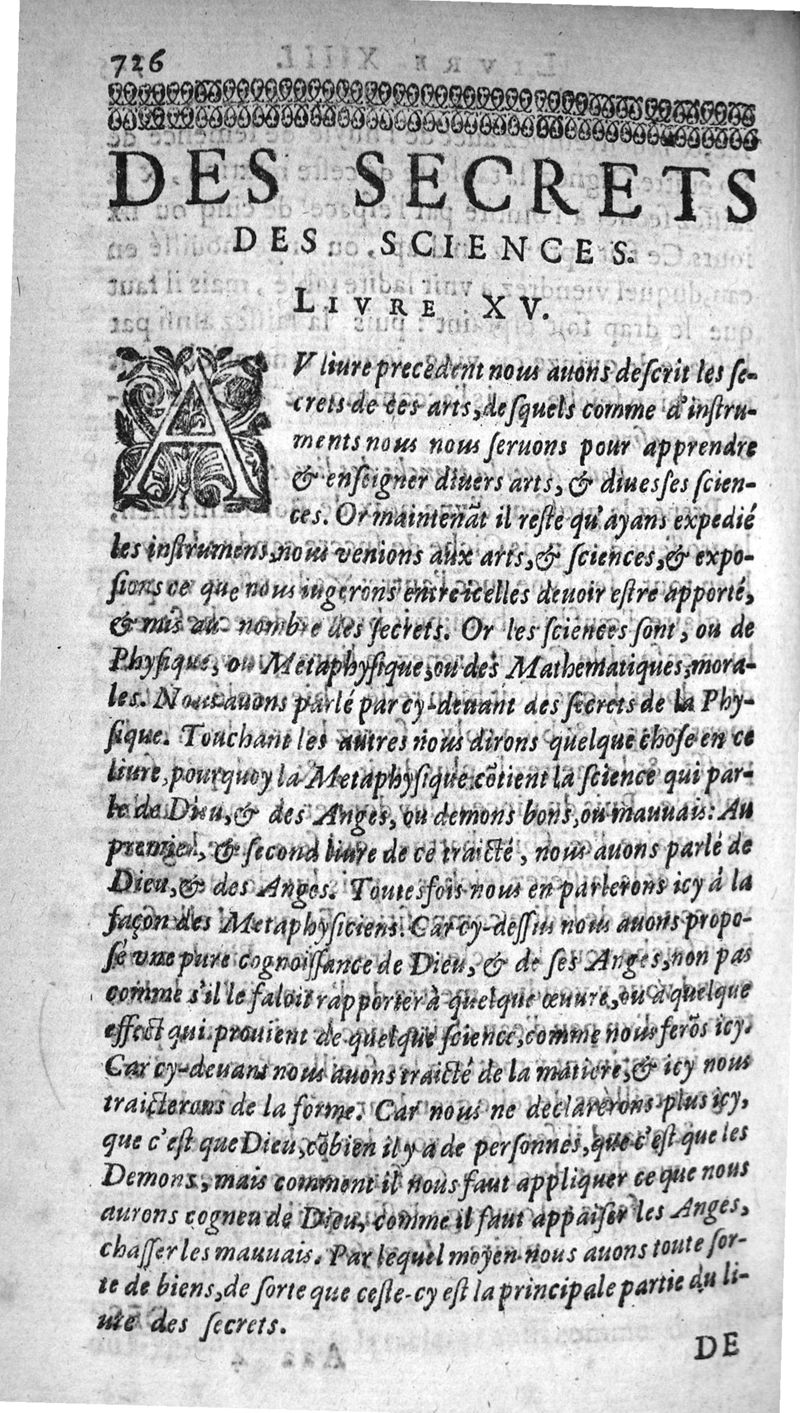 726
DES SECRETS
DES SCIENCES.
LIVRE XV.
AV liure precedent nous auons descrit les se-
crets de ces arts, desquels comme d'instru-
ments nous nous seruons pour apprendre
& enseigner diuers arts, & diuesses scien-
ces. Or maintenãt il reste qu'ayans expedié
les instrumens, nous venions aux arts, & sciences, & expo-
sions ce que nous iugerons entre icelles deuoir estre apporté,
& mis au nombre des secrets. Or les sciences sont, ou de
Physique, ou Metaphysique, ou des Mathematiques, mora-
les. Nous auons parlé par cy-deuant des secrets de la Phy-
sique. Touchant les autres nous dirons quelque chose en ce
liure, pourquoy la Metaphysique cõtient la science qui par-
le de Dieu, & des Anges, ou demons bons, ou mauuais: Au
premier, & second liure de ce traicté, nous auons parlé de
Dieu, & des Anges. Toutesfois nous en parlerons icy à la
façon des Metaphysiciens. Car cy-dessus nous auons propo-
sé vne pure cognoissance de Dieu, & de ses Anges, non pas
comme s'il le faloit rapporter à quelque œuure, ou à quelque
effect qui prouient de quelque science, comme nous ferõs icy.
Car cy-deuans nous auons traicté de la matiere, & icy nous
traicterons de la forme. Car nous ne declarerons plus icy,
que c'est que Dieu, cõbien il y a de personnes, que c'est que les
Demons, mais comment il nous faut appliquer ce que nous
aurons cogneu de Dieu, comme il faut appaiser les Anges,
chasser les mauuais. Par lequel moyen nous auons toute sor-
te de biens, de sorte que ceste-cy est la principale partie du li-
ure des secrets.
DE